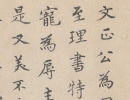 文正公為
至理書特
寵為辱主
是又美不